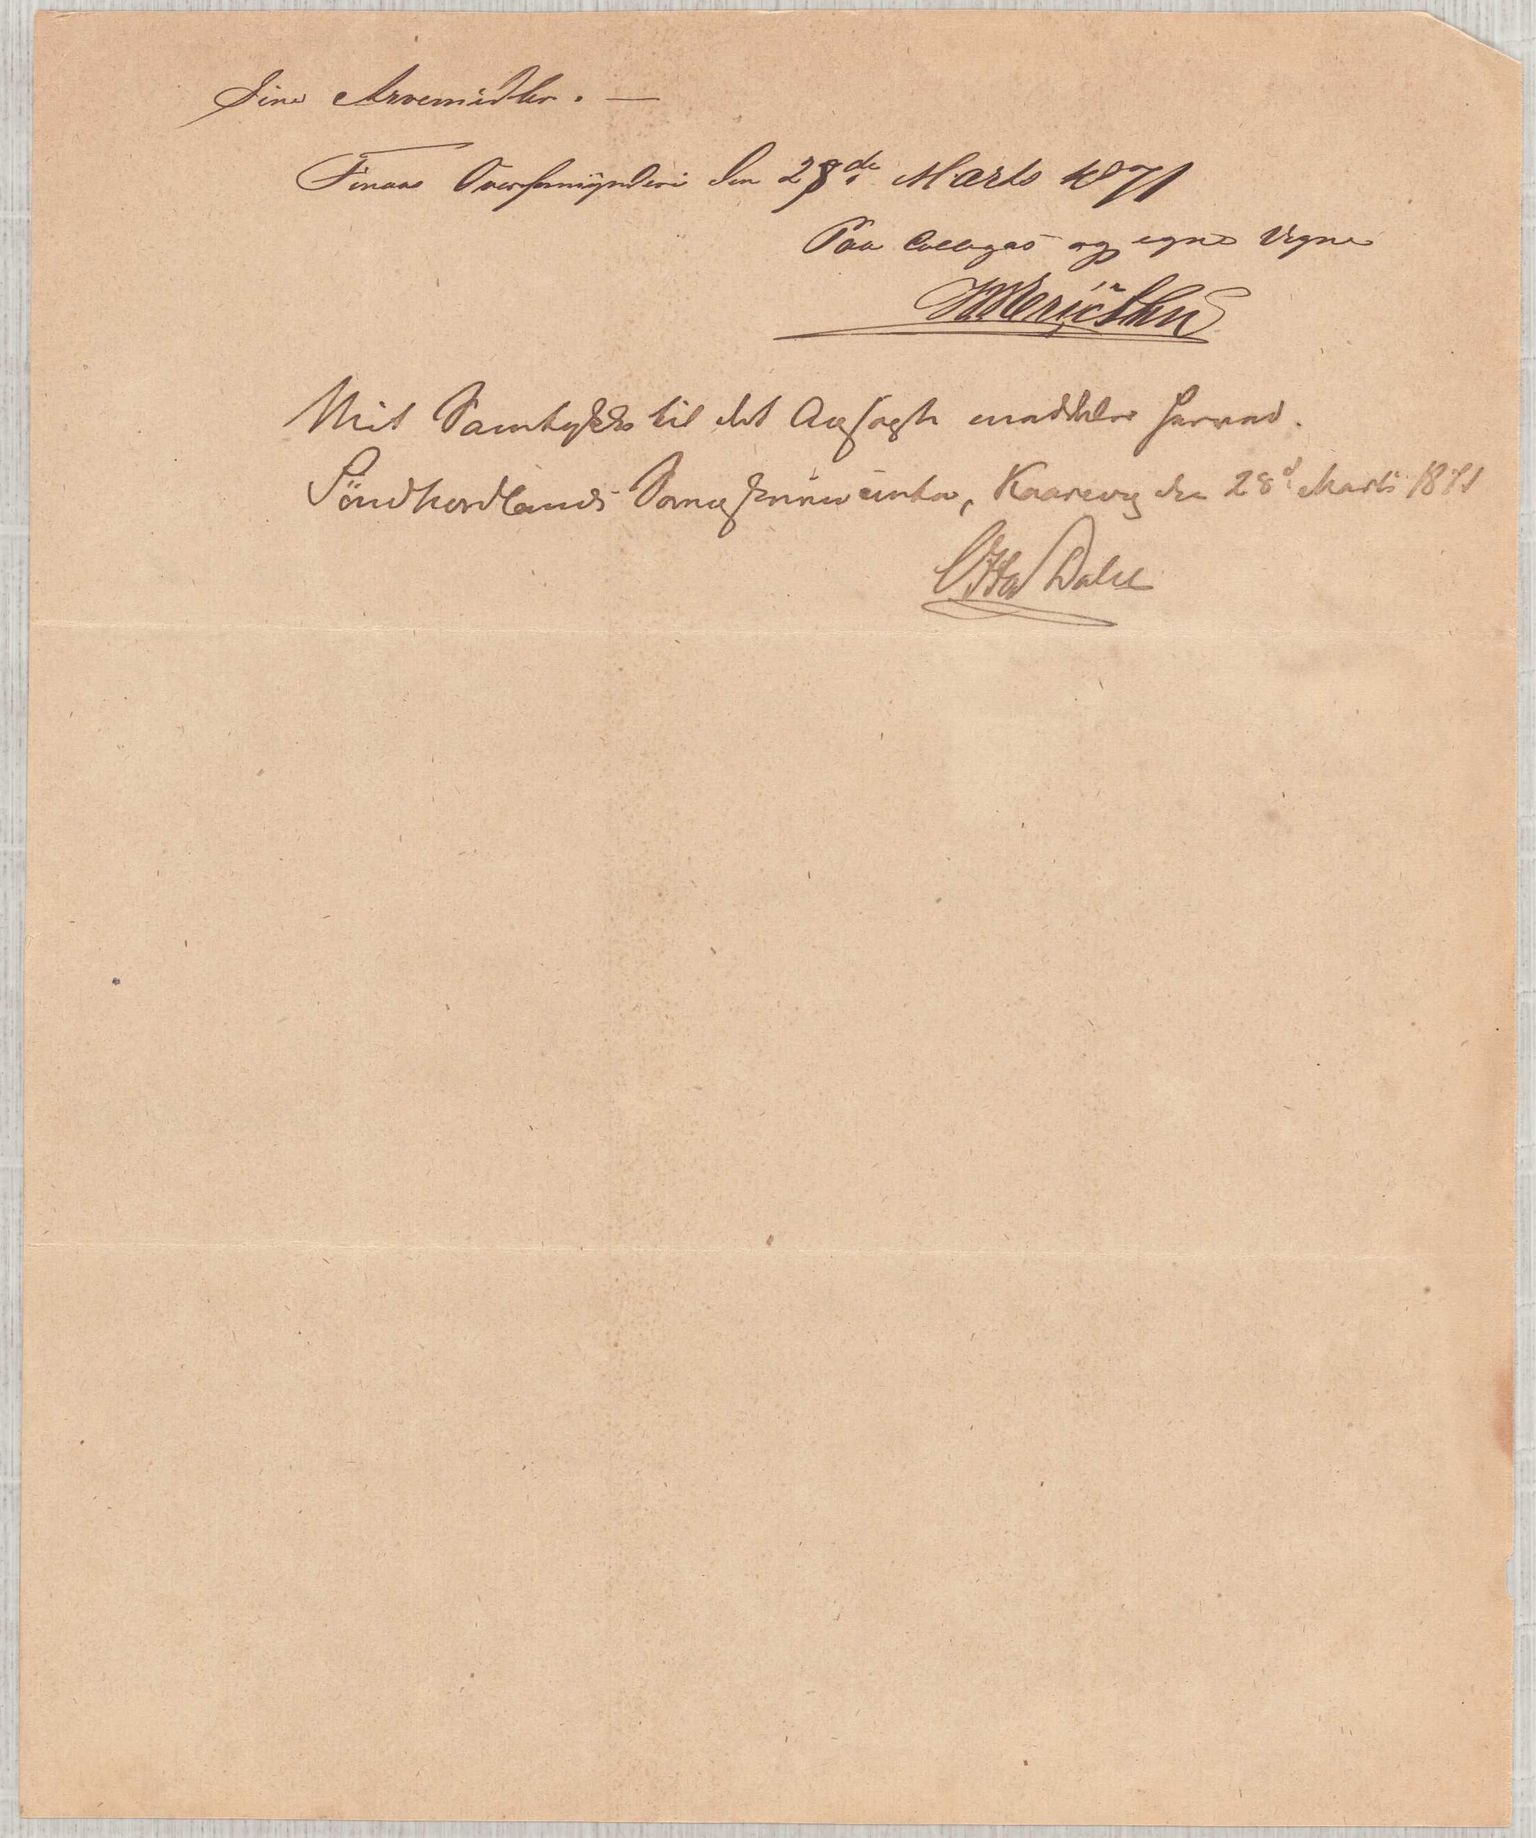 sine Arvemidler. —
Finaas Overformynderi den 28de Marts 1871
Paa Collegas og egne Vegne
Mit Samtykke til det Ansøgte meddeles herved.
Söndhordlands Sorenskriverembede, Kaarevig den 28d Marts 1871
Otto Dahl